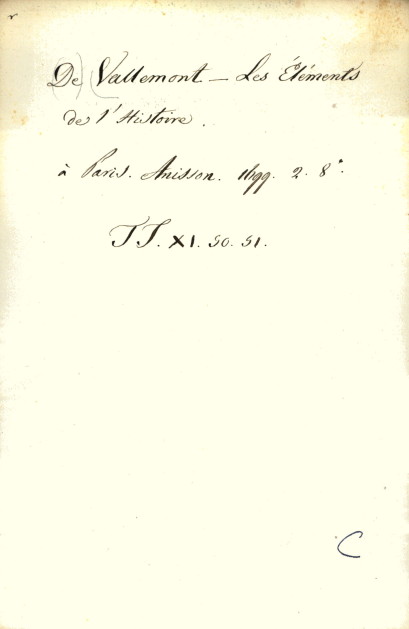 (De) Vallemont - Les Éléments
de l'Histoire.
à Paris. Anisson. 1699. 2. 8°.
TT. XI. 50. 51.
C